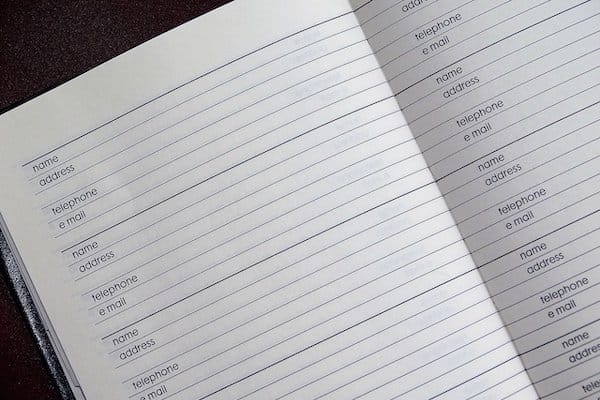 name
address
telephone
e mail
name
address
telephone
e mail
name
address
telephone
e mail
address
telephone
e mail
name
address
telephone
e mail
name
address
telephone
e mail
name
address
telephone
e mail
name
address